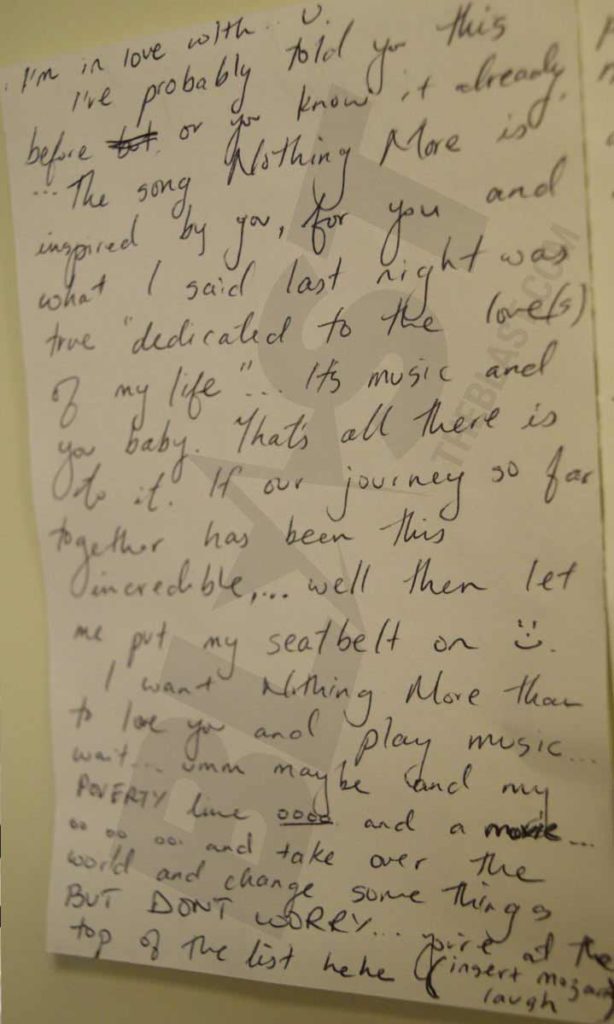 I'm in love with.. U.
I've probably told you this
before but or you know it already.
...The song Nothing More is
inspired by you, for you and
what I said last night was
true "dedicated to the love(s)
of my life"... It's music and
you baby. That's all there is
to it. If our journey so far
together has been this
incredible,... well then let
me put my seatbelt on :)
I want Nothing More than
to love you and play music...
wait... umm maybe and my
POVERTY line oooo and a movie...
oo oo oo. and take over the
world and change some things
BUT DONT WORRY... you're at the
top of the list hehe (insert mozart
laugh)
BLAST
THEBLAST.COM